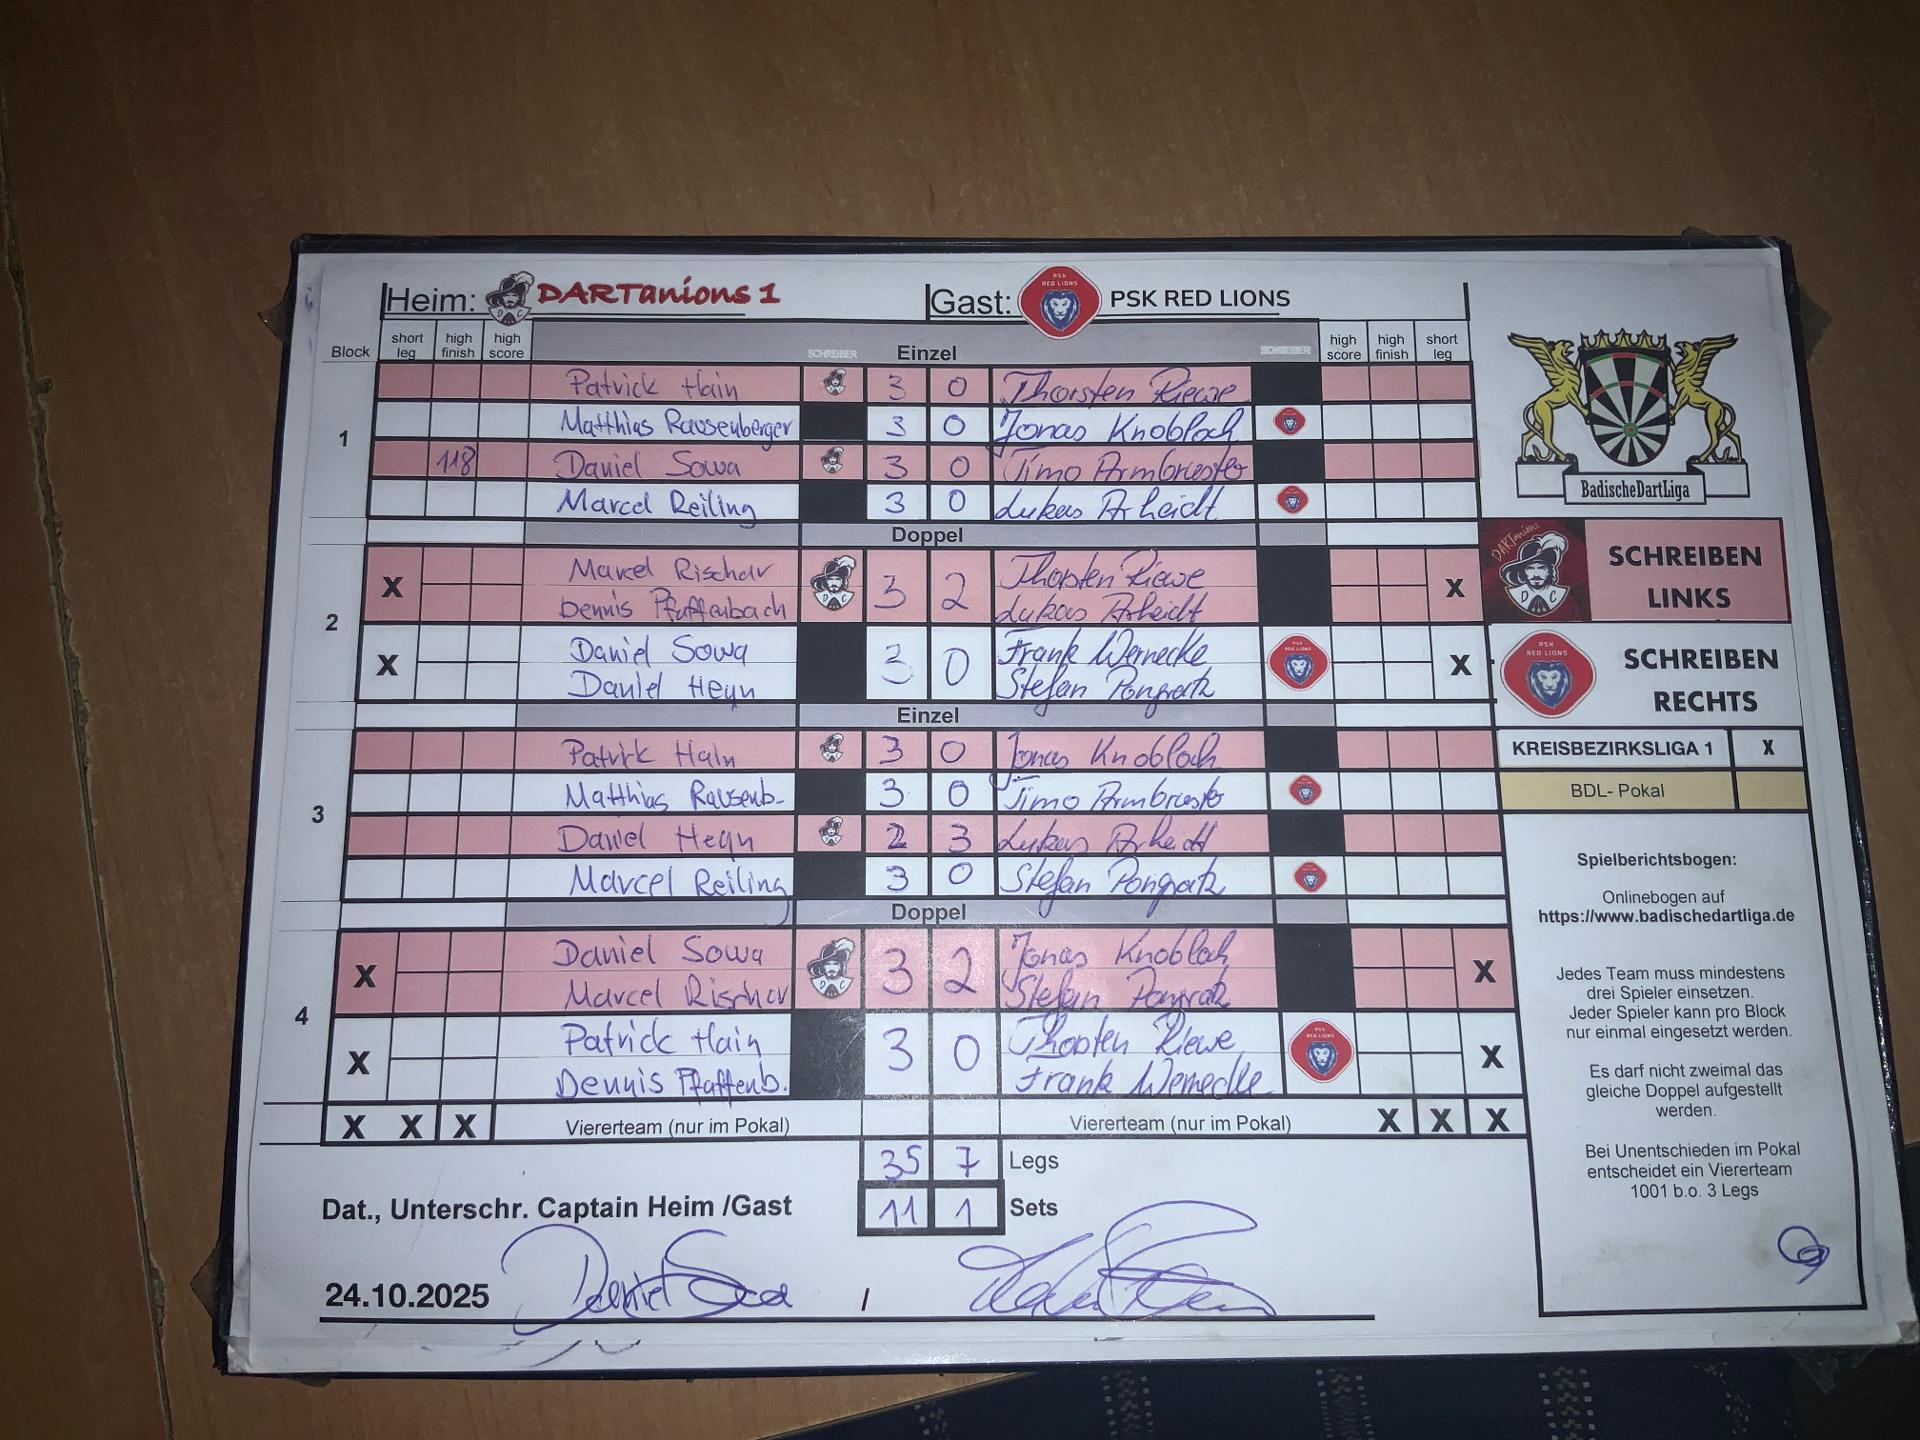 Heim: DARTanions 1 Gast: PSK RED LIONS PSK RED LIONS
Block short leg high finish high score SCHREIBER Einzel SCHREIBER high score high finish short leg
1
Patrick Hain 3 0 Thorsten Riewe
Matthias Rausenberger 3 0 Jonas Knobloch
118 Daniel Sowa 3 0 Timo Armbruster
Marcel Reiling 3 0 Lukas Arheidt
Doppel
2
X Marcel Rischar 3 2 Thorsten Riewe X
Dennis Pfaffenbach Lukas Arheidt
X Daniel Sowa 3 0 Frank Wernecke X
Daniel Heyn Stefan Pongratz
Einzel
3
Patrick Hain 3 0 Jonas Knobloch
Matthias Rausenb. 3 0 Timo Armbruster
Daniel Heyn 2 3 Lukas Arheidt
Marcel Reiling 3 0 Stefan Pongratz
Doppel
4
X Daniel Sowa 3 2 Jonas Knobloch X
Marcel Rischar Stefan Pongratz
X Patrick Hain 3 0 Thorsten Riewe X
Dennis Pfaffenb. Frank Wernecke
X X X Viererteam (nur im Pokal) Viererteam (nur im Pokal) X X X
35 7 Legs
Dat., Unterschr. Captain Heim /Gast 11 1 Sets
24.10.2025 Daniel Sowa /
BadischeDartLiga
DARTanions
SCHREIBEN
LINKS
PSK RED LIONS
SCHREIBEN
RECHTS
KREISBEZIRKSLIGA 1 X
BDL- Pokal
Spielberichtsbogen:
Onlinebogen auf
https://www.badischedartliga.de
Jedes Team muss mindestens
drei Spieler einsetzen.
Jeder Spieler kann pro Block
nur einmal eingesetzt werden.
Es darf nicht zweimal das
gleiche Doppel aufgestellt
werden.
Bei Unentschieden im Pokal
entscheidet ein Viererteam
1001 b.o. 3 Legs